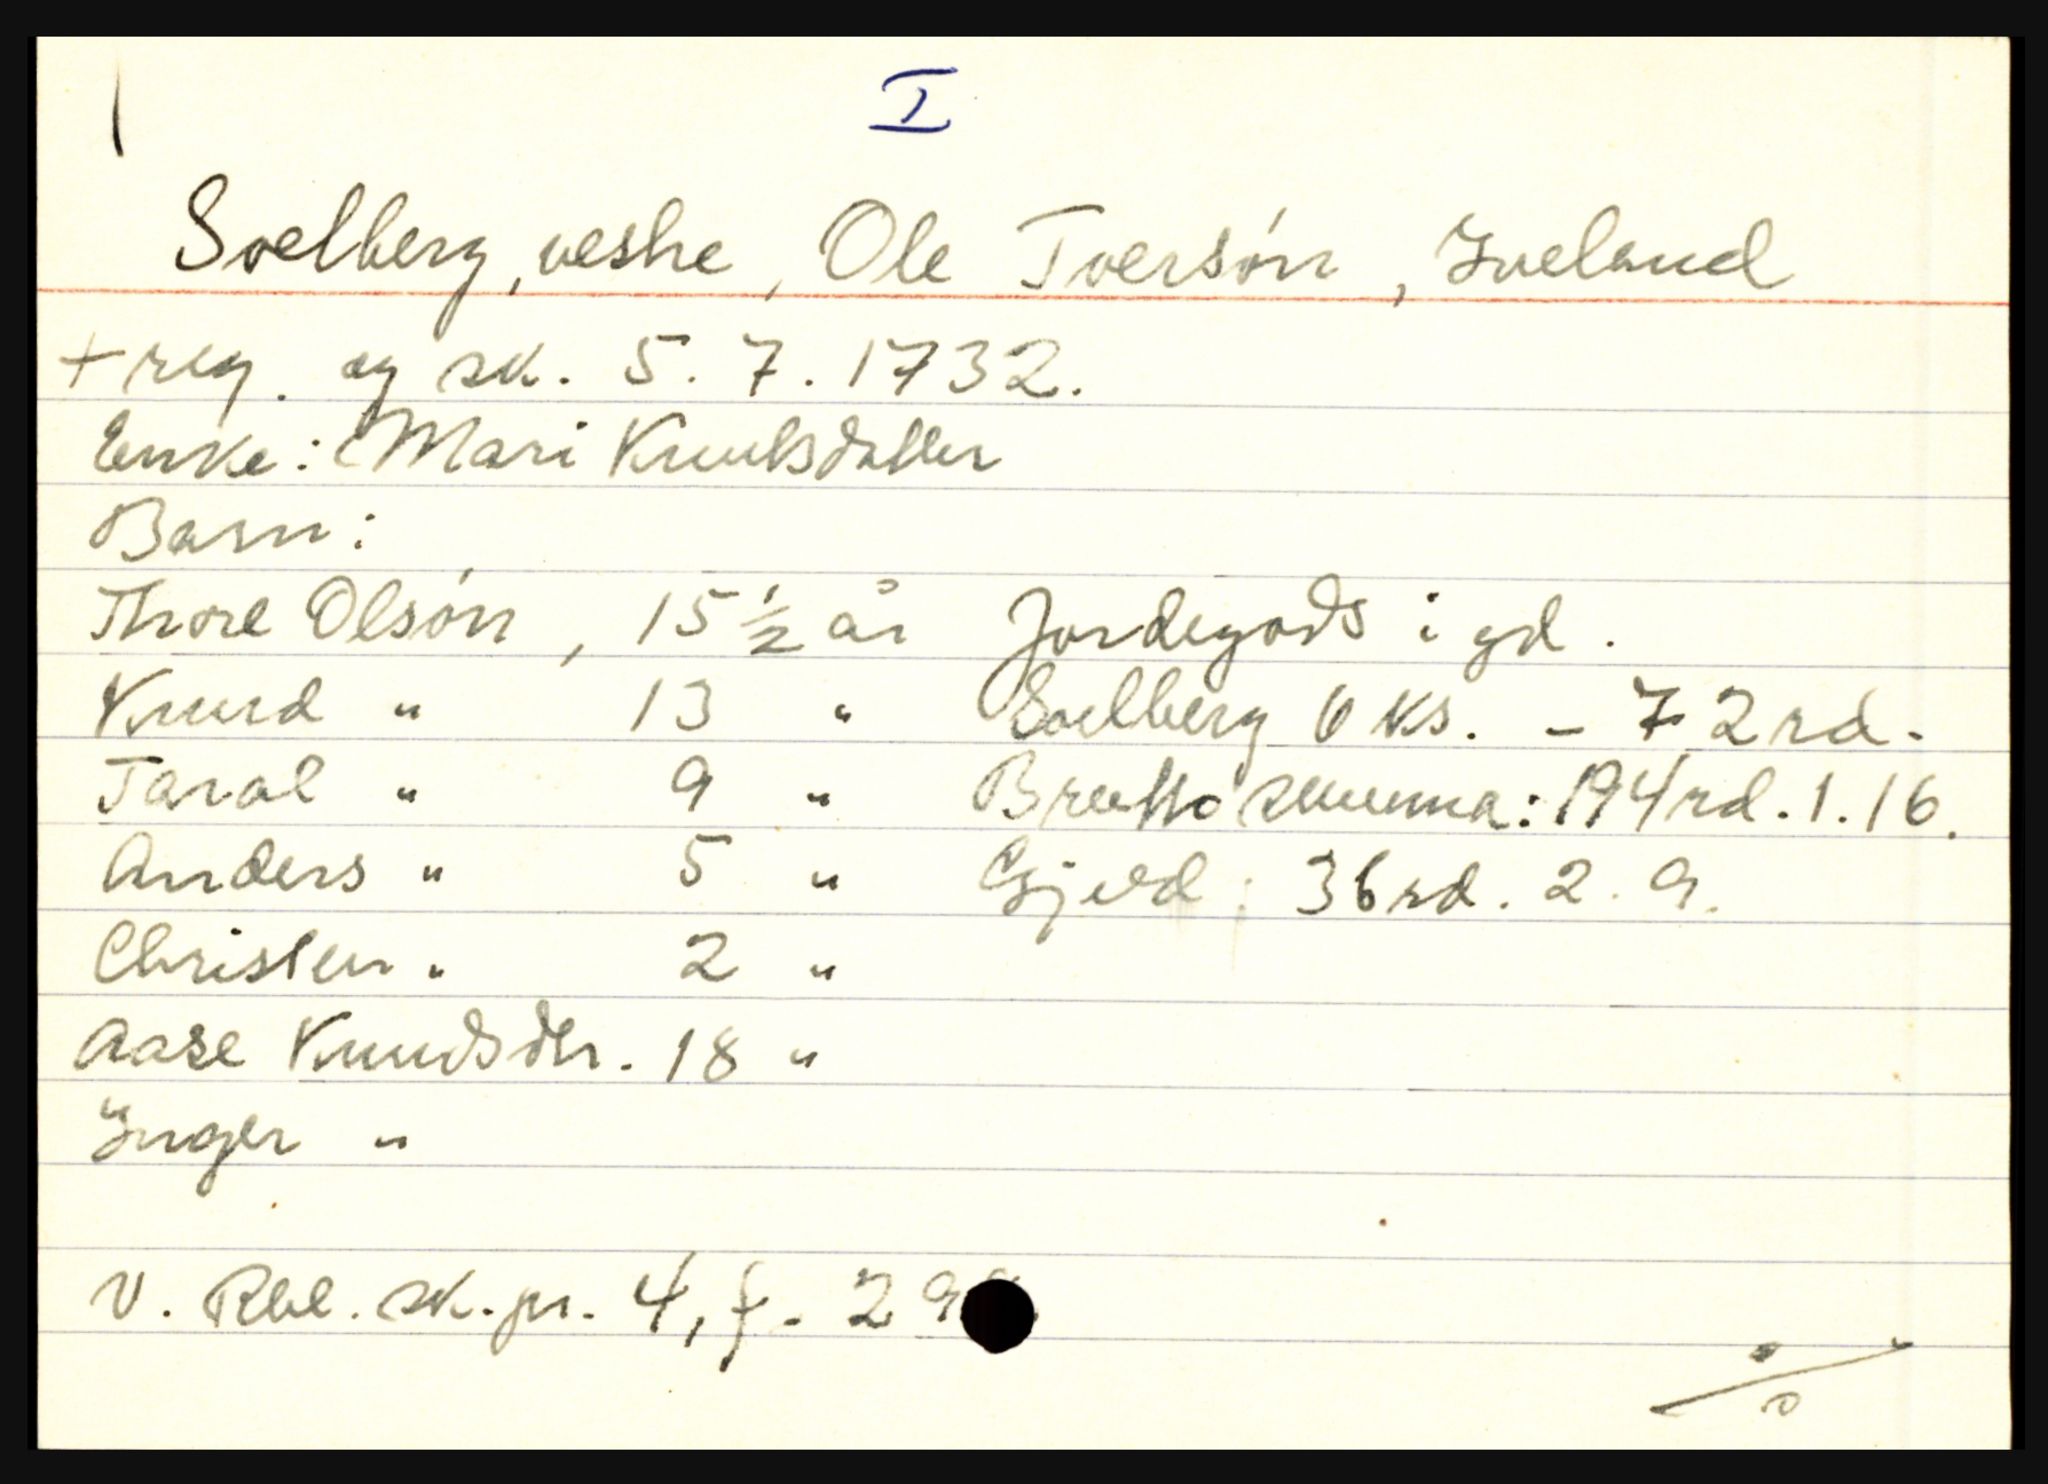 I
Svelberg, vestre, Ole Tversön, Iveland
+ reg. og sk. 5. 7. 1732.
Enke: Mari Knutsdatter
Barn:
Thore Olsön, 15 ½ år Jordegods i gd.
Knud " 13 " Svelberg 6 ks. - 72 rd.
Taral " 9 " Brutto summa: 194 rd. 1. 16.
Anders " 5 " Gjeld: 36 rd. 2. 9.
Christen " 2 "
Aase Knudsdtr. 18 "
Inger "
V. Rbl. sk. pr. 4, f.